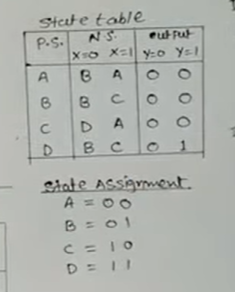 State table
P.S. N S. output
X=0 X=1 Y=0 Y=1
A B A 0 0
B B C 0 0
C D A 0 0
D B C 0 1
State Assignment.
A = 00
B = 01
C = 10
D = 11